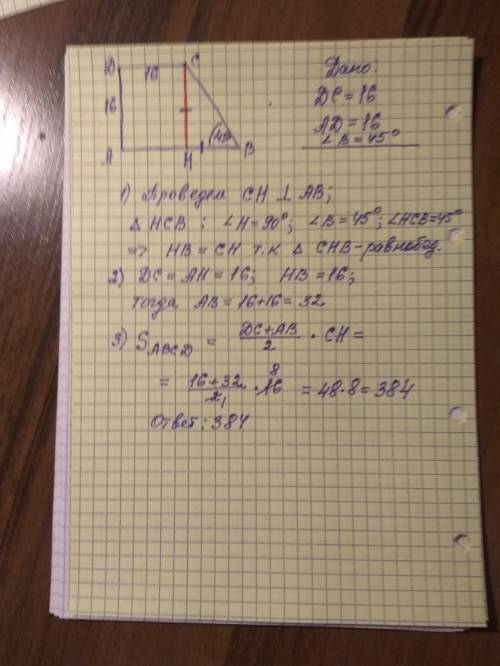 D 16 C
16
A H B
45
Дано:
DC = 16
AD = 16
∠B = 45°
1) Проведем CH ⊥ AB;
△ HCB : ∠H = 90°; ∠B = 45°; ∠HCB = 45°
=> HB = CH т.к △ CHB - равнобед.
2) DC = AH = 16; HB = 16;
тогда AB = 16+16 = 32
3) S ABCD = DC+AB / 2 · CH =
= 16+32 / 2 1 · 16 8 = 48·8 = 384
Ответ: 384